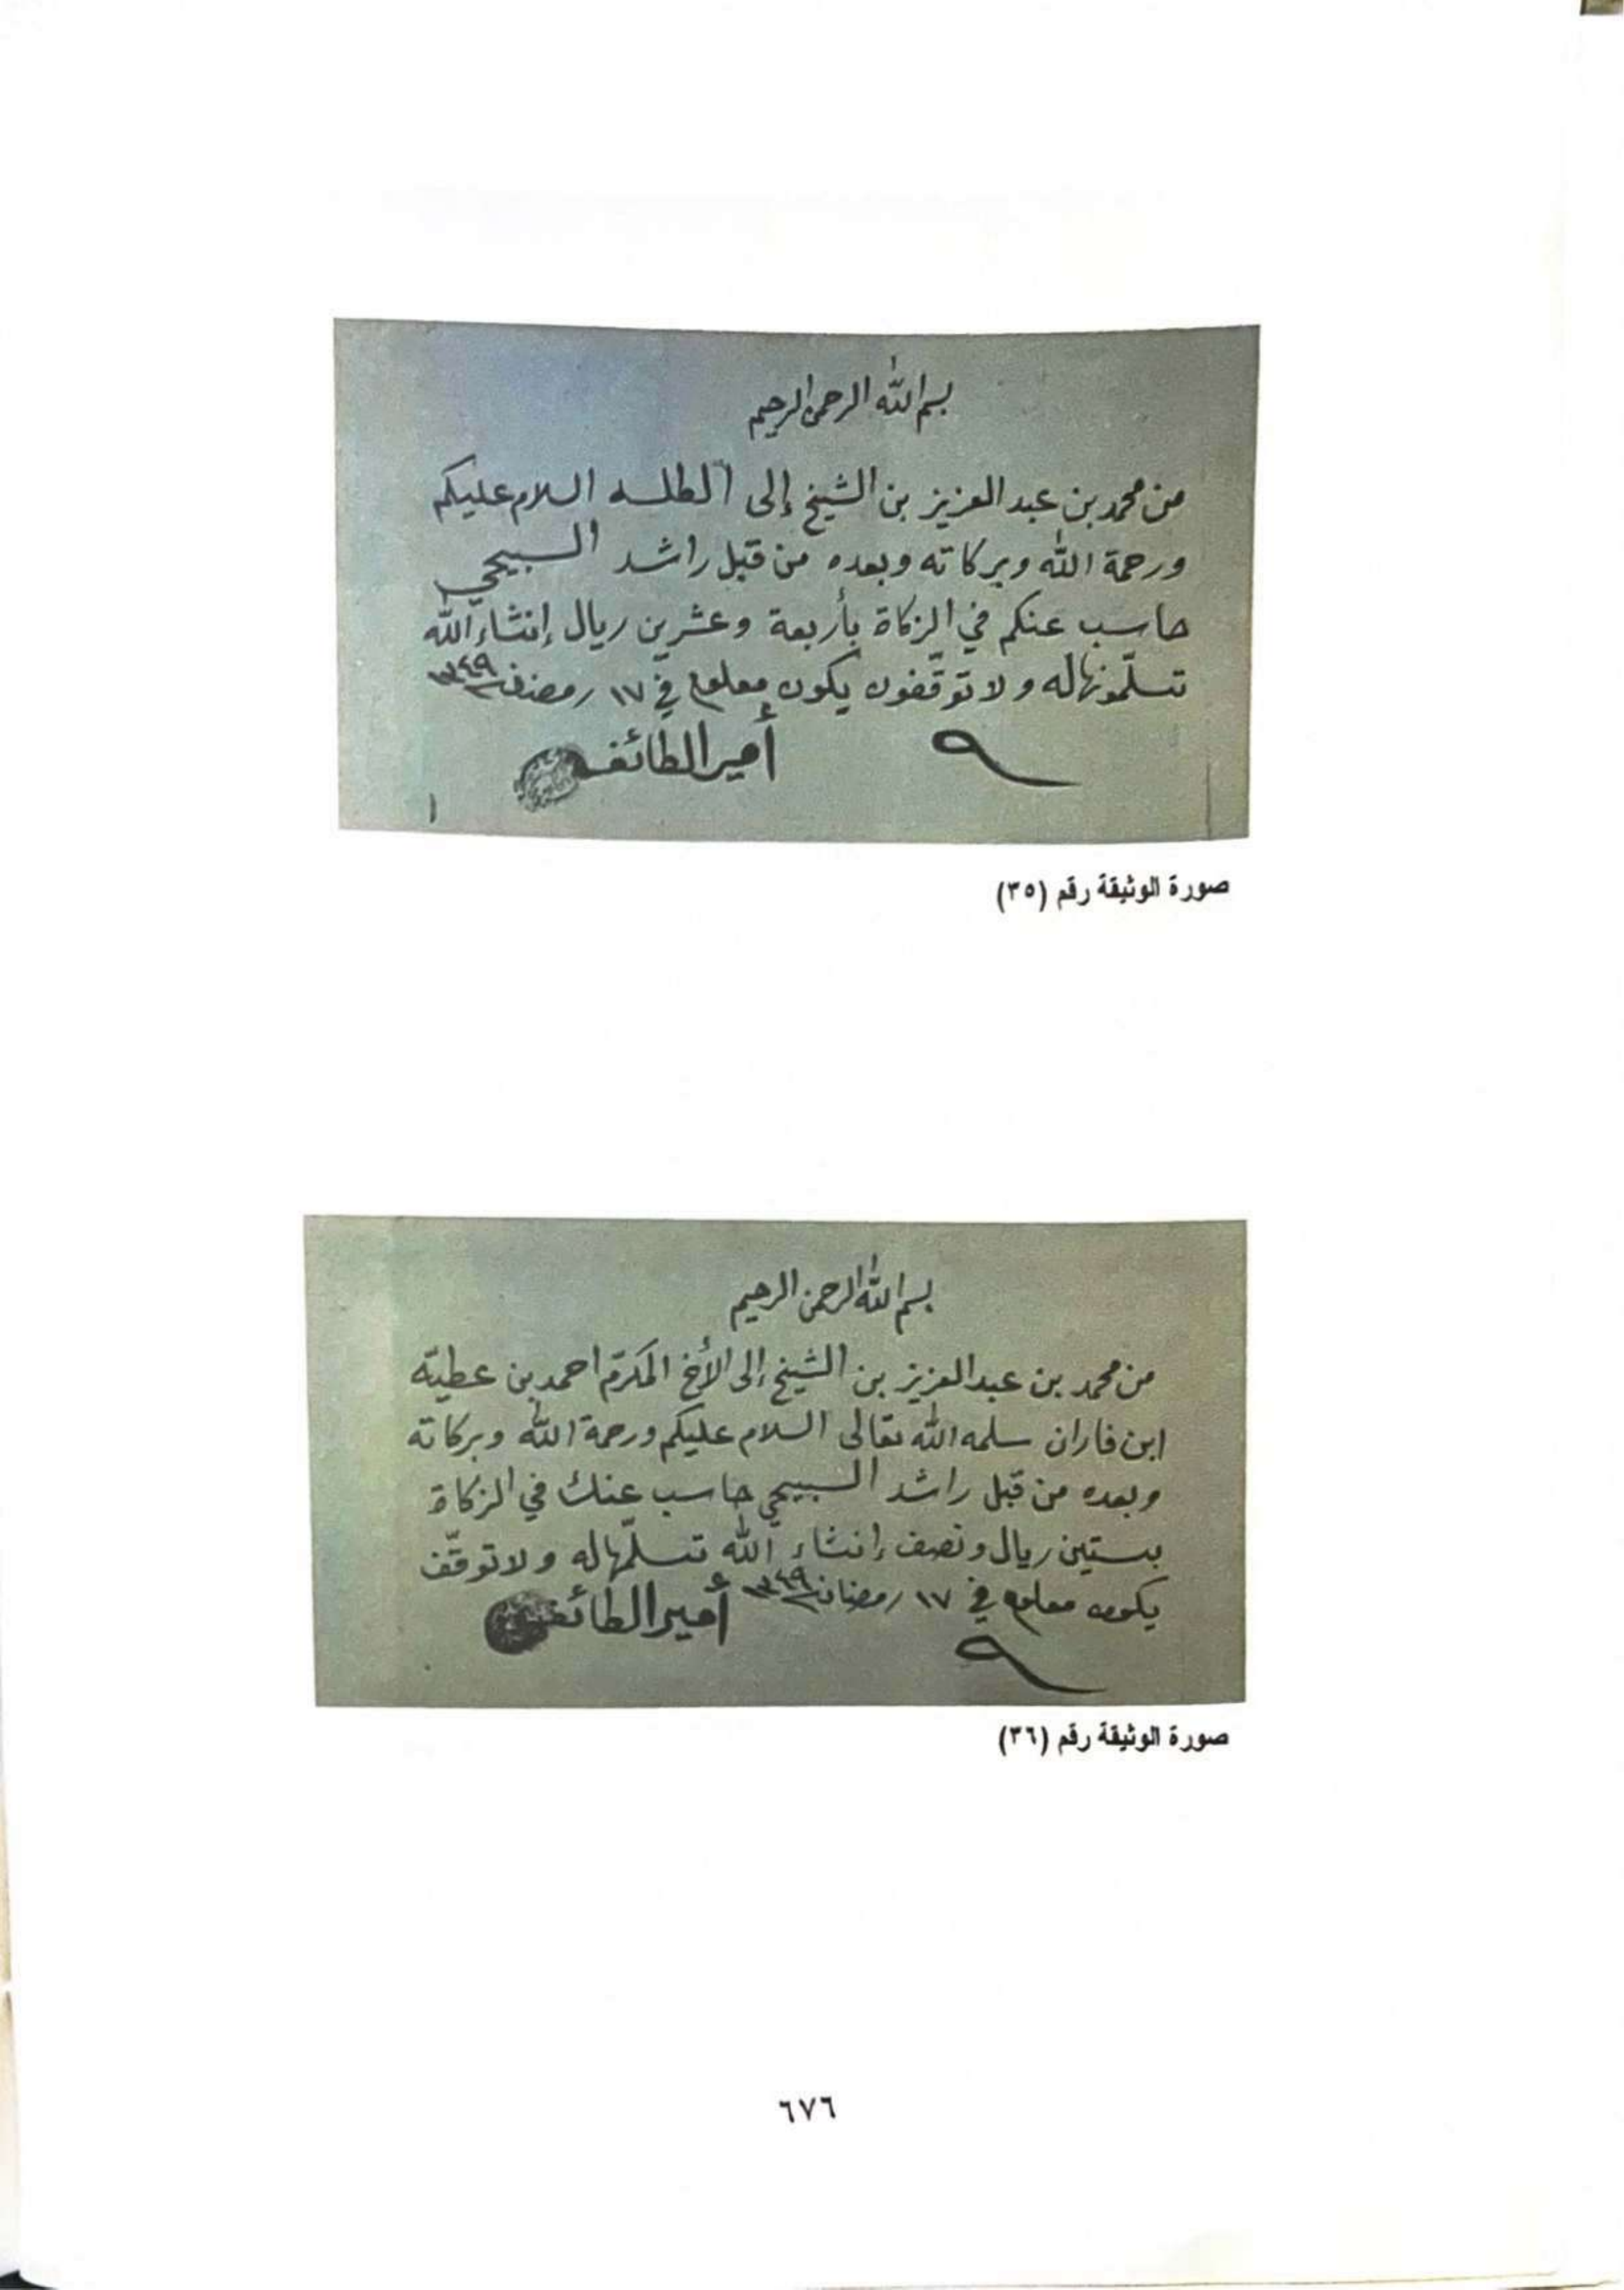 بسم الله الرحمن الرحيم
من محمد بن عبد العزيز بن الشيخ إلى الطلسه السلام عليكم
ورحمة الله وبركاته وبعده من قبل راشد السبيحي
حاسب عنكم في الزكاة بأربعة وعشرين ريال إنشاء الله
تسلّمونها له ولا توقّفون يكون معلوم في ١٧ رمضان ١٣٤٩
أمير الطائف
صورة الوثيقة رقم (٣٥)
بسم الله الرحمن الرحيم
من محمد بن عبد العزيز بن الشيخ إلى الأخ المكرّم احمد بن عطيّة
ابن فاران سلمه الله تعالى السلام عليكم ورحمة الله وبركاته
وبعده من قبل راشد السبيحي حاسب عنك في الزكاة
بستين ريال ونصف إنشاء الله تسلّمها له ولا توقّف
يكون معلوم في ١٧ رمضان ١٣٤٩
أمير الطائف
صورة الوثيقة رقم (٣٦)
٦٧٦